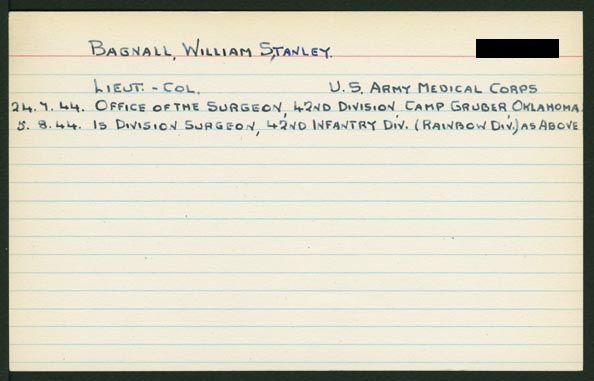 BAGNALL, WILLIAM STANLEY.
LIEUT. - COL. U.S. ARMY MEDICAL CORPS
24.7.44. OFFICE OF THE SURGEON, 42ND DIVISION, CAMP GRUBER OKLAHOMA.
5.8.44. IS DIVISION SURGEON, 42ND INFANTRY DIV. (RAINBOW DIV.) AS ABOVE